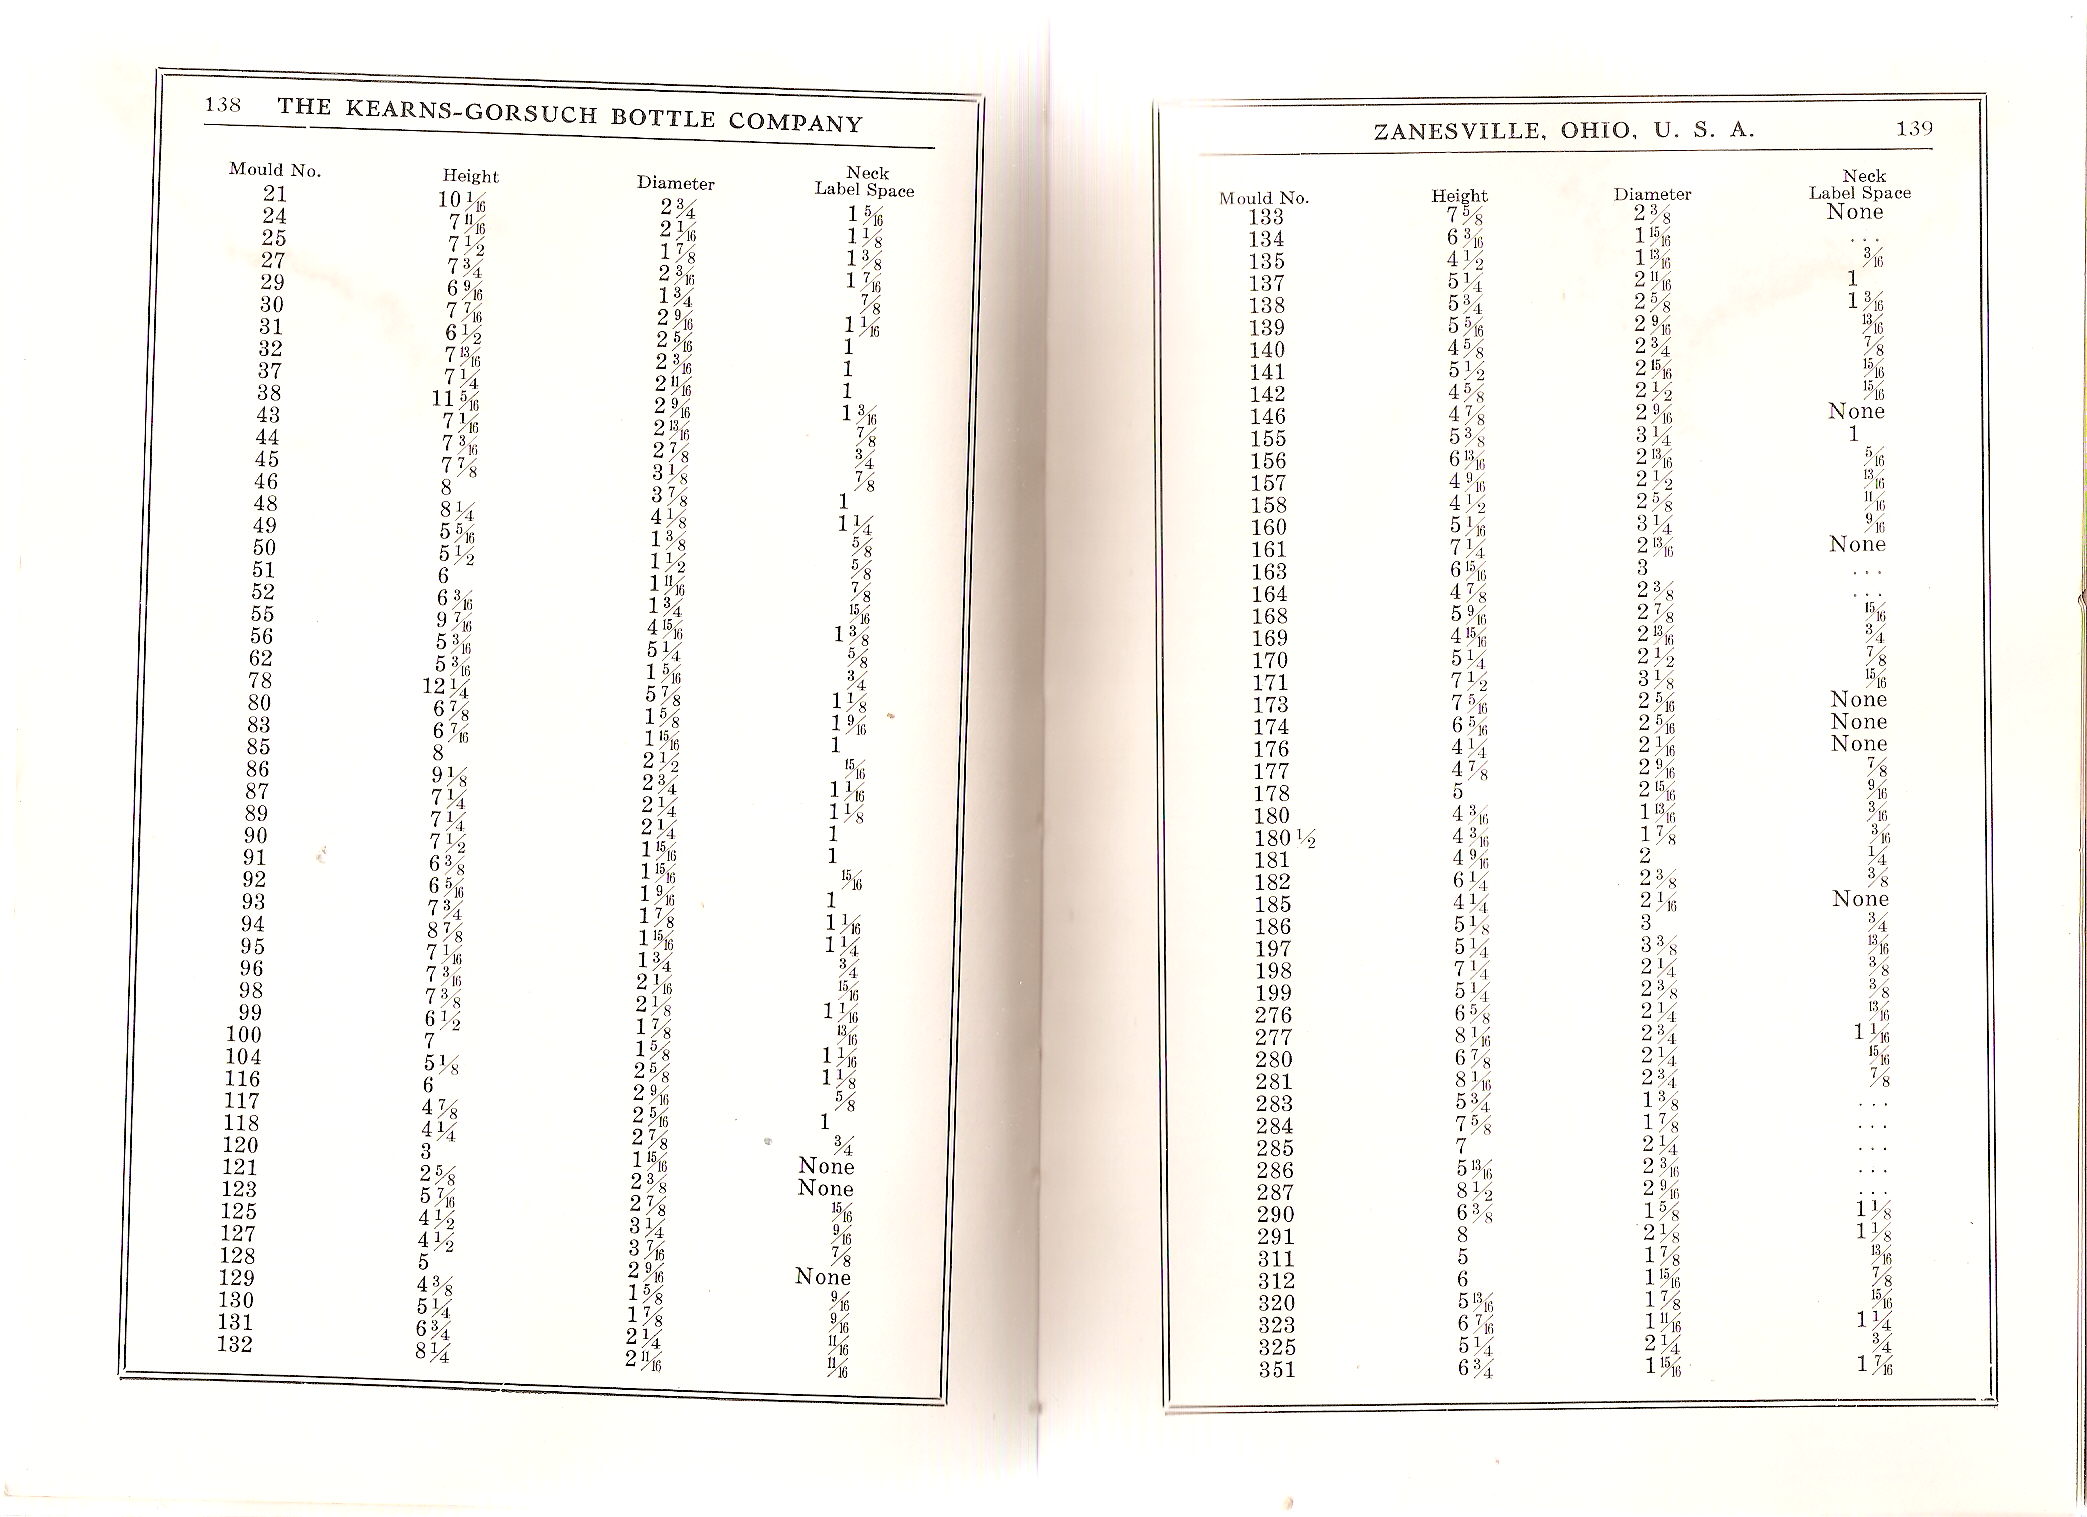 138 THE KEARNS-GORSUCH BOTTLE COMPANY
Mould No. Height Diameter Neck Label Space
21 10 1/16 2 3/4 1 5/16
24 7 11/16 2 1/16 1 1/8
25 7 1/2 1 7/8 1 3/8
27 7 3/4 2 3/16 1 7/16
29 6 9/16 1 3/4 7/8
30 7 7/16 2 9/16 1 1/16
31 6 1/2 2 5/16 1
32 7 13/16 2 3/16 1
37 7 1/4 2 11/16 1
38 11 5/16 2 9/16 1 3/16
43 7 1/16 2 13/16 7/8
44 7 3/16 2 7/8 3/4
45 7 7/8 3 1/8 7/8
46 8 3 7/8 1
48 8 1/4 4 1/8 1 1/4
49 5 5/16 1 3/8 5/8
50 5 1/2 1 1/2 5/8
51 6 1 11/16 7/8
52 6 3/16 1 3/4 15/16
55 9 7/16 4 15/16 1 3/8
56 5 3/16 5 1/4 5/8
62 5 3/16 1 5/16 3/4
78 12 1/4 5 7/8 1 1/8
80 6 7/8 1 5/8 1 9/16
83 6 7/16 1 15/16 1
85 8 2 1/2 15/16
86 9 1/8 2 3/4 1 1/16
87 7 1/4 2 1/4 1 1/8
89 7 1/4 2 1/4 1
90 7 1/2 1 15/16 1
91 6 3/8 1 15/16 15/16
92 6 5/16 1 9/16 1
93 7 3/4 1 7/8 1 1/16
94 8 7/8 1 15/16 1 1/4
95 7 1/16 1 3/4 3/4
96 7 3/16 2 1/16 15/16
98 7 3/8 2 1/8 1 1/16
99 6 1/2 1 7/8 13/16
100 7 1 5/8 1 1/16
104 5 1/8 2 5/8 1 1/8
116 6 2 9/16 5/8
117 4 7/8 2 5/16 1
118 4 1/4 2 7/8 3/4
120 3 1 15/16 None
121 2 5/8 2 3/8 None
123 5 7/16 2 7/8 15/16
125 4 1/2 3 1/4 9/16
127 4 1/2 3 7/16 7/8
128 5 2 9/16 None
129 4 3/8 1 5/8 9/16
130 5 1/4 1 7/8 9/16
131 6 3/4 2 1/4 11/16
132 8 1/4 2 11/16 11/16
ZANESVILLE, OHIO, U. S. A. 139
Mould No. Height Diameter Neck Label Space
133 7 5/8 2 3/8 None
134 6 3/16 1 15/16 ...
135 4 1/2 1 13/16 3/16
137 5 1/4 2 11/16 1
138 5 3/4 2 5/8 1 3/16
139 5 5/16 2 9/16 13/16
140 4 5/8 2 3/4 7/8
141 5 1/2 2 15/16 15/16
142 4 5/8 2 1/2 15/16
146 4 7/8 2 9/16 None
155 5 3/8 3 1/4 1
156 6 13/16 2 13/16 5/16
157 4 9/16 2 1/2 13/16
158 4 1/2 2 5/8 11/16
160 5 1/16 3 1/4 9/16
161 7 1/4 2 13/16 None
163 6 15/16 3 ...
164 4 7/8 2 3/8 ...
168 5 9/16 2 7/8 15/16
169 4 15/16 2 13/16 3/4
170 5 1/4 2 1/2 7/8
171 7 1/2 3 1/8 15/16
173 7 5/16 2 5/16 None
174 6 5/16 2 5/16 None
176 4 1/4 2 1/16 None
177 4 7/8 2 9/16 7/8
178 5 2 15/16 9/16
180 4 3/16 1 13/16 3/16
180 1/2 4 3/16 1 7/8 3/16
181 4 9/16 2 1/4
182 6 1/4 2 3/8 3/8
185 4 1/4 2 1/16 None
186 5 1/8 3 3/4
197 5 1/4 3 3/8 13/16
198 7 1/4 2 1/4 3/8
199 5 1/4 2 3/8 3/8
276 6 5/8 2 1/4 13/16
277 8 1/16 2 3/4 1 1/16
280 6 7/8 2 1/4 15/16
281 8 1/16 2 3/4 7/8
283 5 3/4 1 3/8 ...
284 7 5/8 1 7/8 ...
285 7 2 1/4 ...
286 5 13/16 2 3/16 ...
287 8 1/2 2 9/16 ...
290 6 3/8 1 5/8 1 1/8
291 8 2 1/8 1 1/8
311 5 1 7/8 13/16
312 6 1 15/16 7/8
320 5 13/16 1 7/8 15/16
323 6 7/16 1 11/16 1 1/4
325 5 1/4 2 1/4 3/4
351 6 3/4 1 15/16 1 7/16